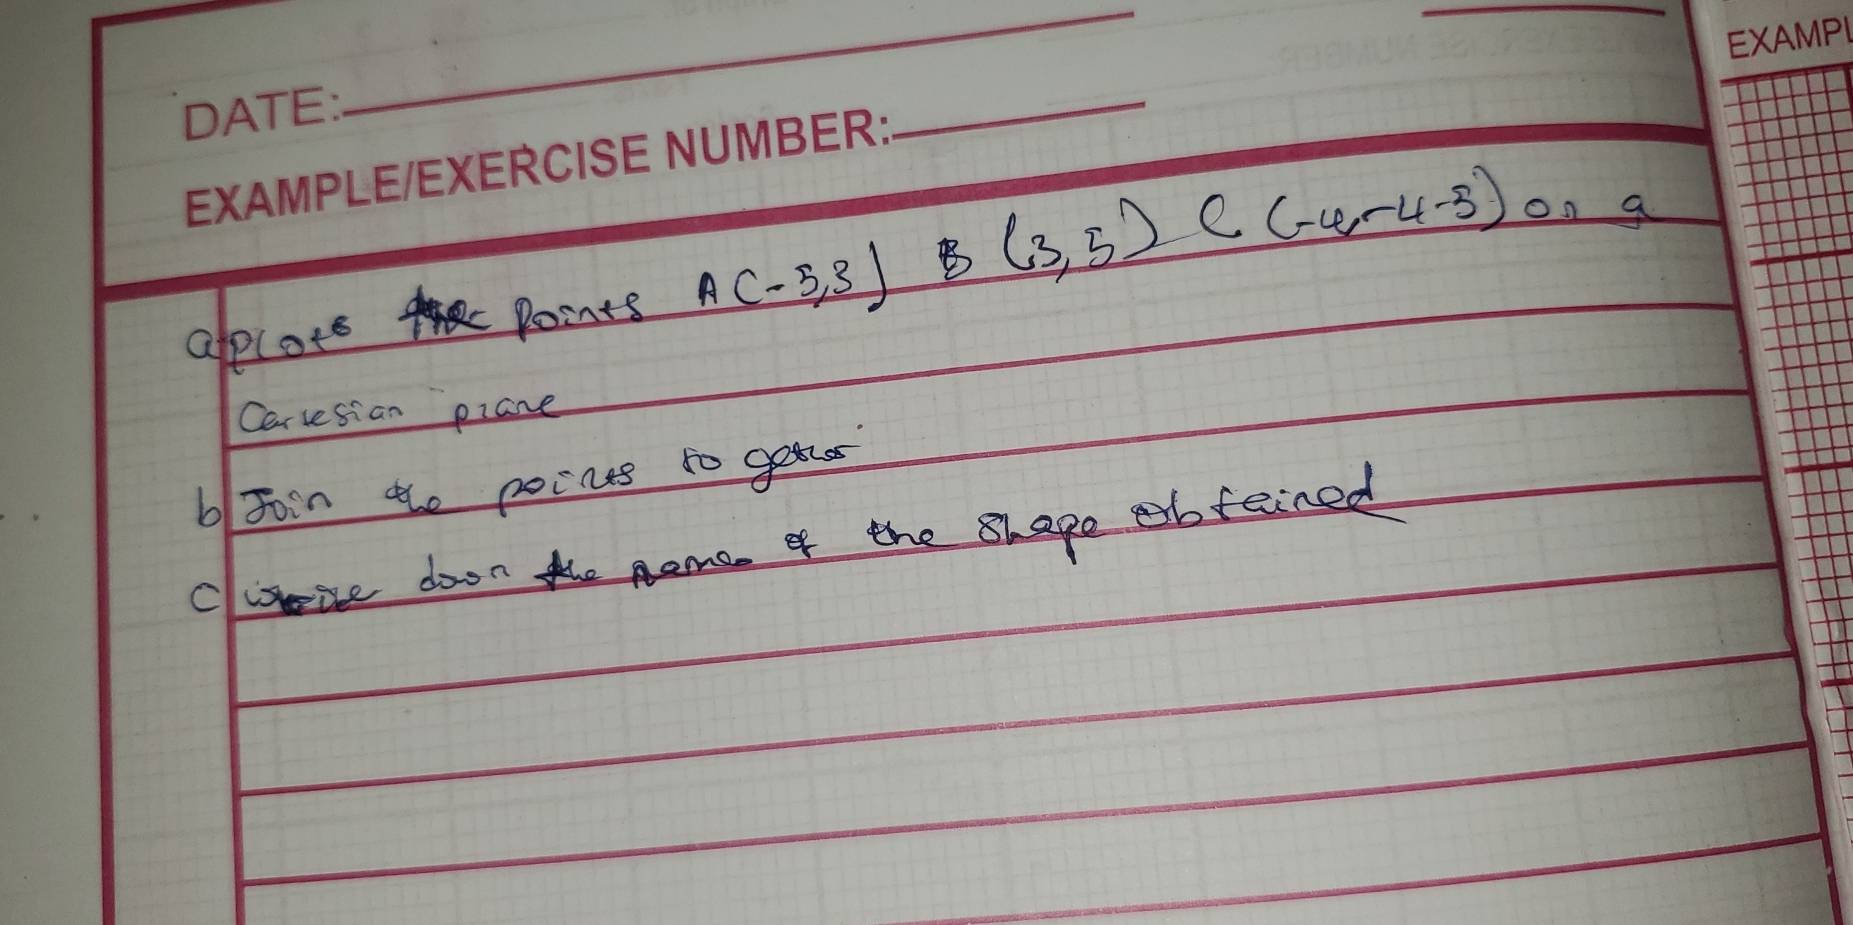 DATE:
EXAMPLE/EXERCISE NUMBER:
EXAMPL
a Plots the Points A (-5,3) B (3,5) C (-4,-4-5) on a
Cartesian plane
b Join the points to gether
c write down the name of the shape obtained